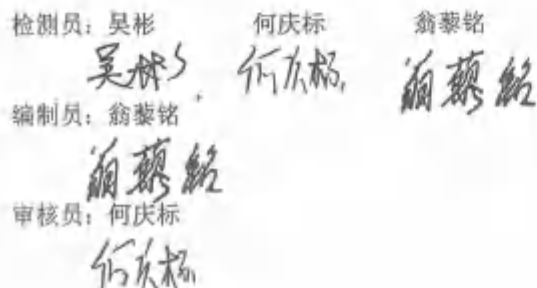 检测员：吴彬 何庆标 翁藜铭
吴彬 何庆标 翁藜铭
编制员：翁藜铭
翁藜铭
审核员：何庆标
何庆标